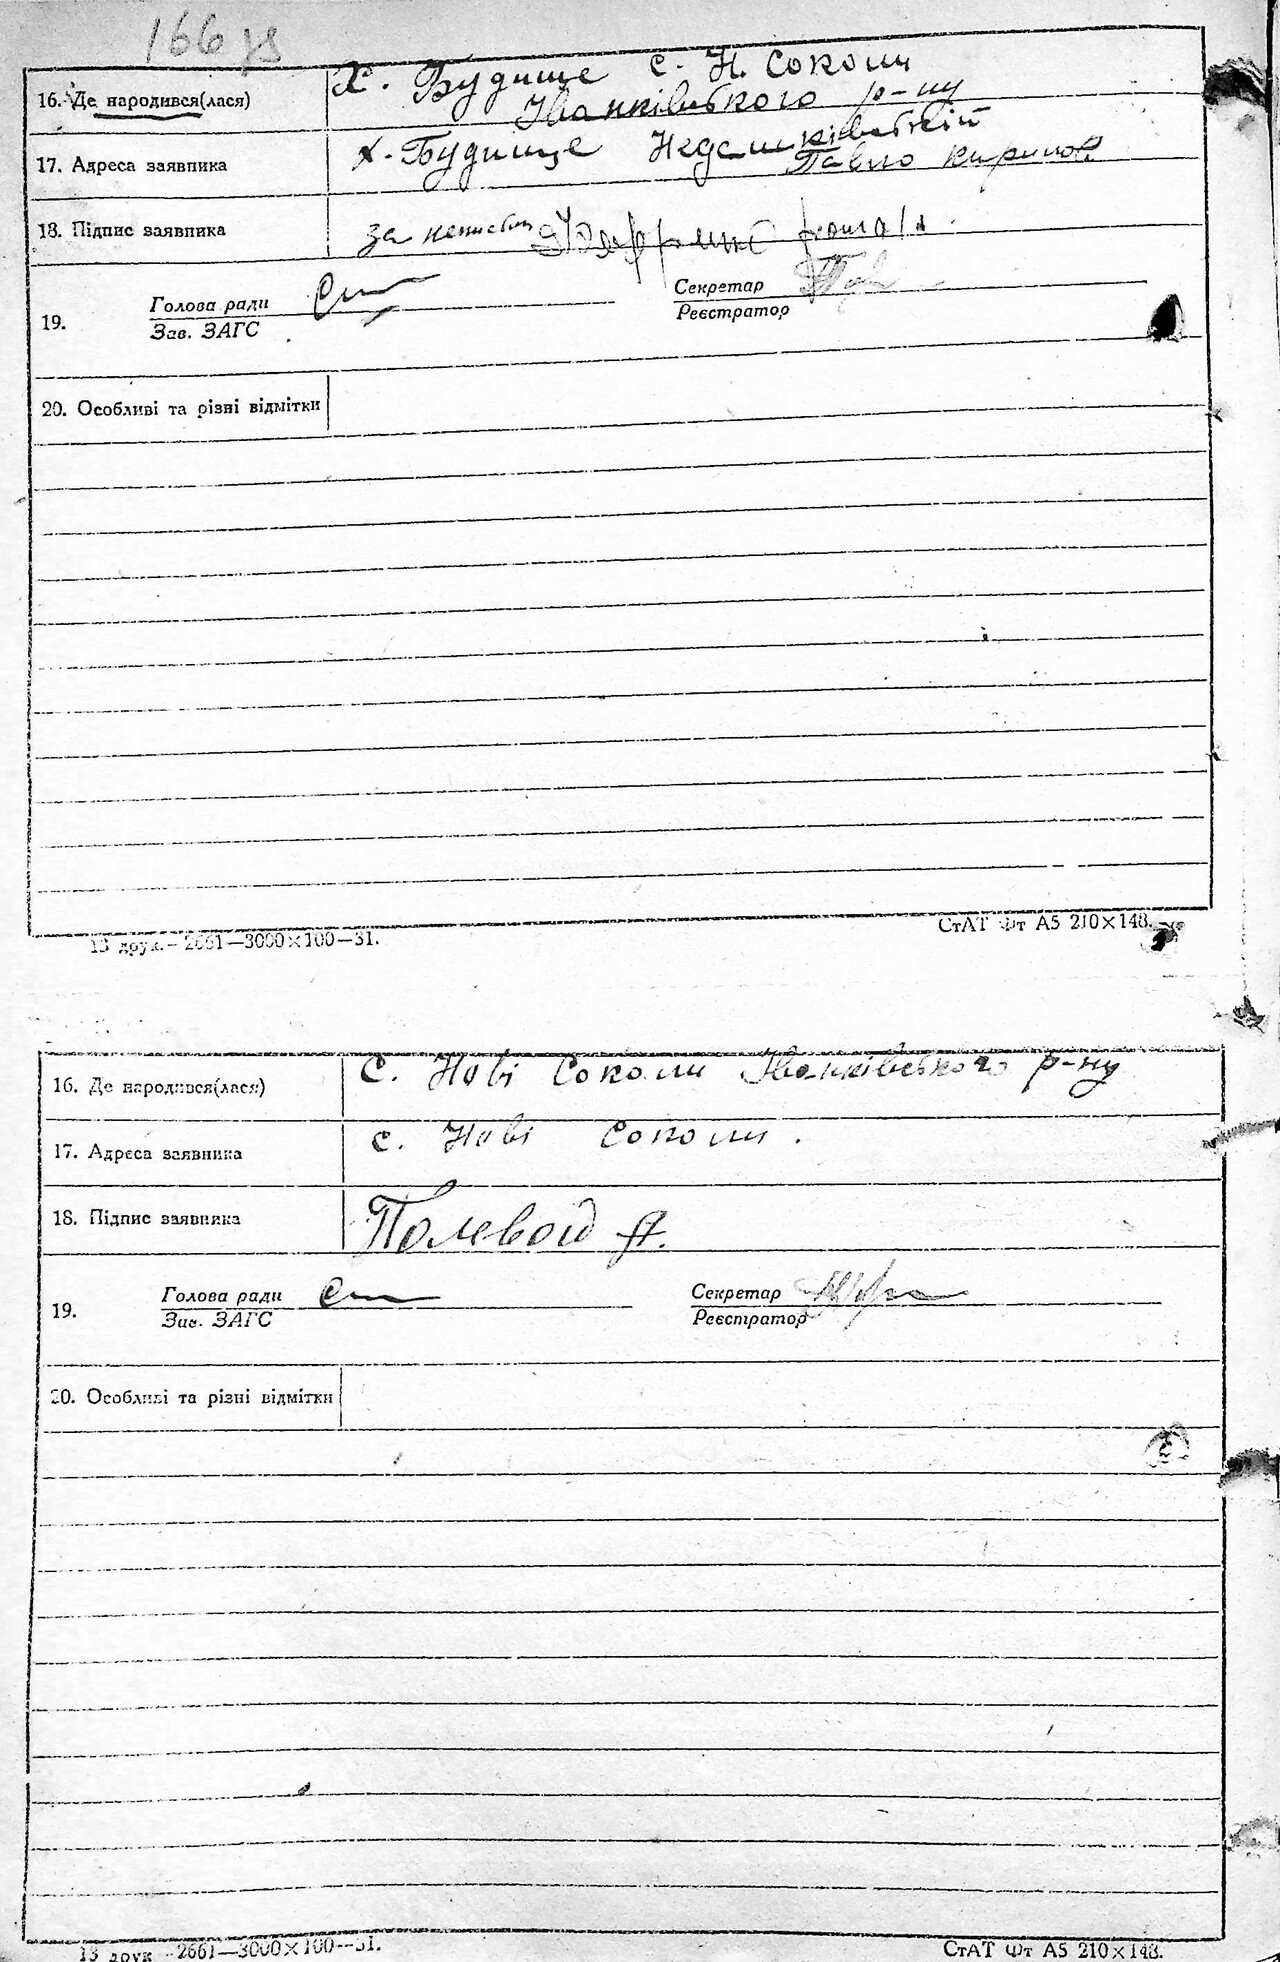 166 зв
Х. Будище с. Н. Соколи
16. Де народився(лася)
Іванківського р-ну
х. Будище Недашківський
17. Адреса заявника
Павло Кирилов
18. Підпис заявника
за неписьм.
Голова ради
Секретар
19.
Зав. ЗАГС
Реєстратор
20. Особливі та різні відмітки
13 друк.—2661—3000×100—31.
СтАТ Фт А5 210×148.
16. Де народився(лася) с. Нові Соколи Іванківського р-ну
17. Адреса заявника с. Нові Соколи.
18. Підпис заявника Полевой Я.
Голова ради
Секретар
19.
Зав. ЗАГС
Реєстратор
20. Особливі та різні відмітки
13 друк.—2661—3000×100—31.
СтАТ Фт А5 210×148.